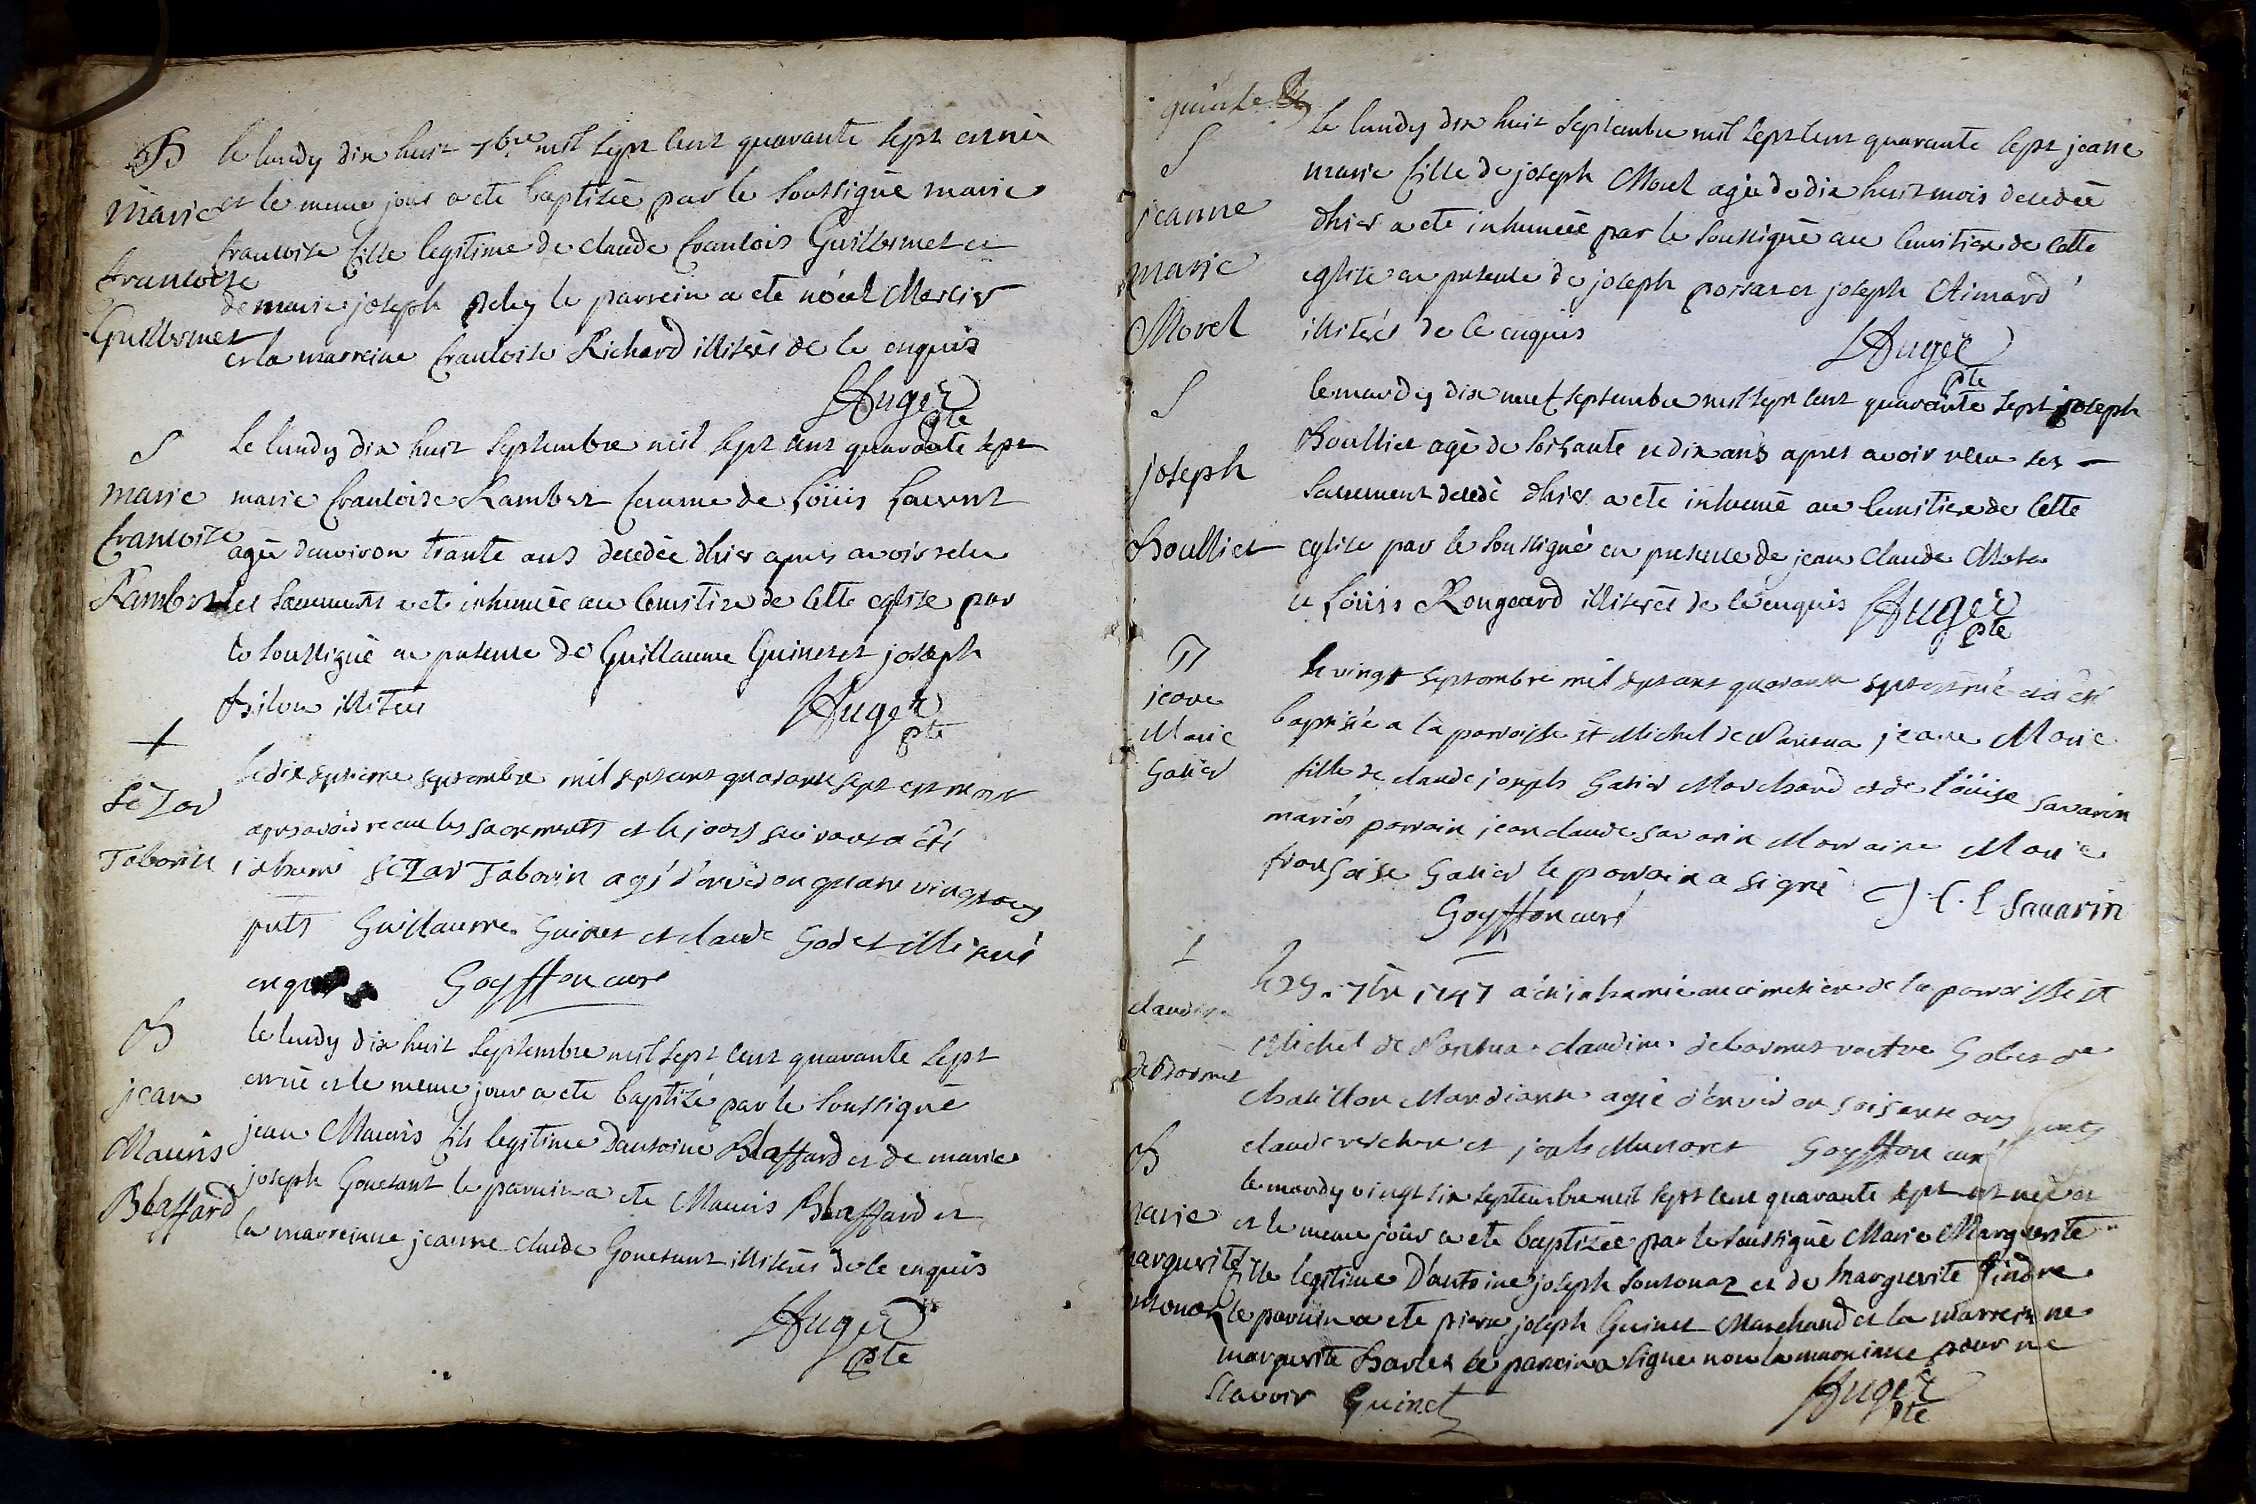 B
marie
francoise
Guillermet
le lundy dix huit 7bre mil sept cent quarante sept est née
et le meme jour a ete baptisée par le soussigné marie
francoise fille legitime de claude francois Guillermet et
de marie joseph peley le parrein a ete nöel Mercier
et la marreine francoise Richard illiterés de ce enquis
Auger
pte
S
marie
francoise
Rambert
Le lundy dix huit septembre mil sept cent quarante sept
marie francoise Rambert femme de Loüis Laurent
agée denviron trante ans decedée dhier apres avoir receu
les sacrements a ete inhumée au cemitiere de cette eglise par
le soussigné en presence de Guillaume Guinet et joseph
bilon illiterés
Auger
pte
+
Sezar
Taborin
le dix septieme septembre mil sept cent quarante sept est mort
apres avoir receu les sacrements et le jours suivant a été
inhumé Sezar Taborin agé d'environ quatre vingt ans
pnts Guillaume Guinet et claude Godet illiterés
enquis Goyffon curé
B
jean
Mauris
Blaffard
le lundy dix huit septembre mil sept cent quarante sept
est né et le meme jour a ete baptizé par le soussigné
jean Mauris fils legitime Dantoine Blaffard et de marie
joseph Gonetant le parrein a ete Mauris Blaffard et
la marreinne jeanne claude Gonetant illiterés de ce enquis
Auger
pte
quinte
S
jeanne
marie
Morel
le lundy dix huit septembre mil sept cent quarante sept jeane
marie fille de joseph Morel agée de dix huit mois decedée
dhier a ete inhumée par le soussigné au cemitiere de cette
eglise en presence de joseph possat et joseph Aimard
illiterés de ce enquis
Auger
pte
S
joseph
Boullier
le mardy dix neuf septembre mil sept cent quarante sept joseph
Boullier agé de soisante et dix ans apres avoir receu ses
sacrement decedé dhier a ete inhumé au cemitiere de cette
eglise par le soussigné en presence de jean claude Mote
et Loüis Rongeard illiterés de ce enquis Auger
pte
B
jeane
Marie
Galier
le vingt septembre mil sept cent quarante sept est née et a été
baptisée a la paroisse st Michel de Nantua jeane Marie
fille de claude joseph Galier Marchand et de Loüise savarin
mariés parrain jean claude savarin Marraine Marie
françoise Galier le parrain a signé J. C. L Savarin
Goyffon curé
+
claudine
debornet
le 25 7bre 1747 a été inhumée au cimetiere de la paroisse st
Michel de Nantua claudine debornet veufve Golet de
chatillon Mandiante agée d'environ soisante ans pnts
claude verchere et joseph Munoret Goyffon curé
B
marie
marguerite
sonsonaz
le mardy vingt six septembre mil sept cent quarante sept est née et
et le meme jour a ete baptizée par le soussigné Marie Marguerite
fille legitime D'antoine joseph sonsonaz et de marguerite Jindre
le parrein a ete pierre joseph Guinet Marchand et la marreinne
marguerite Barlet le parrein a signe non la marreinne pour ne
scavoir Guinet
Auger
pte